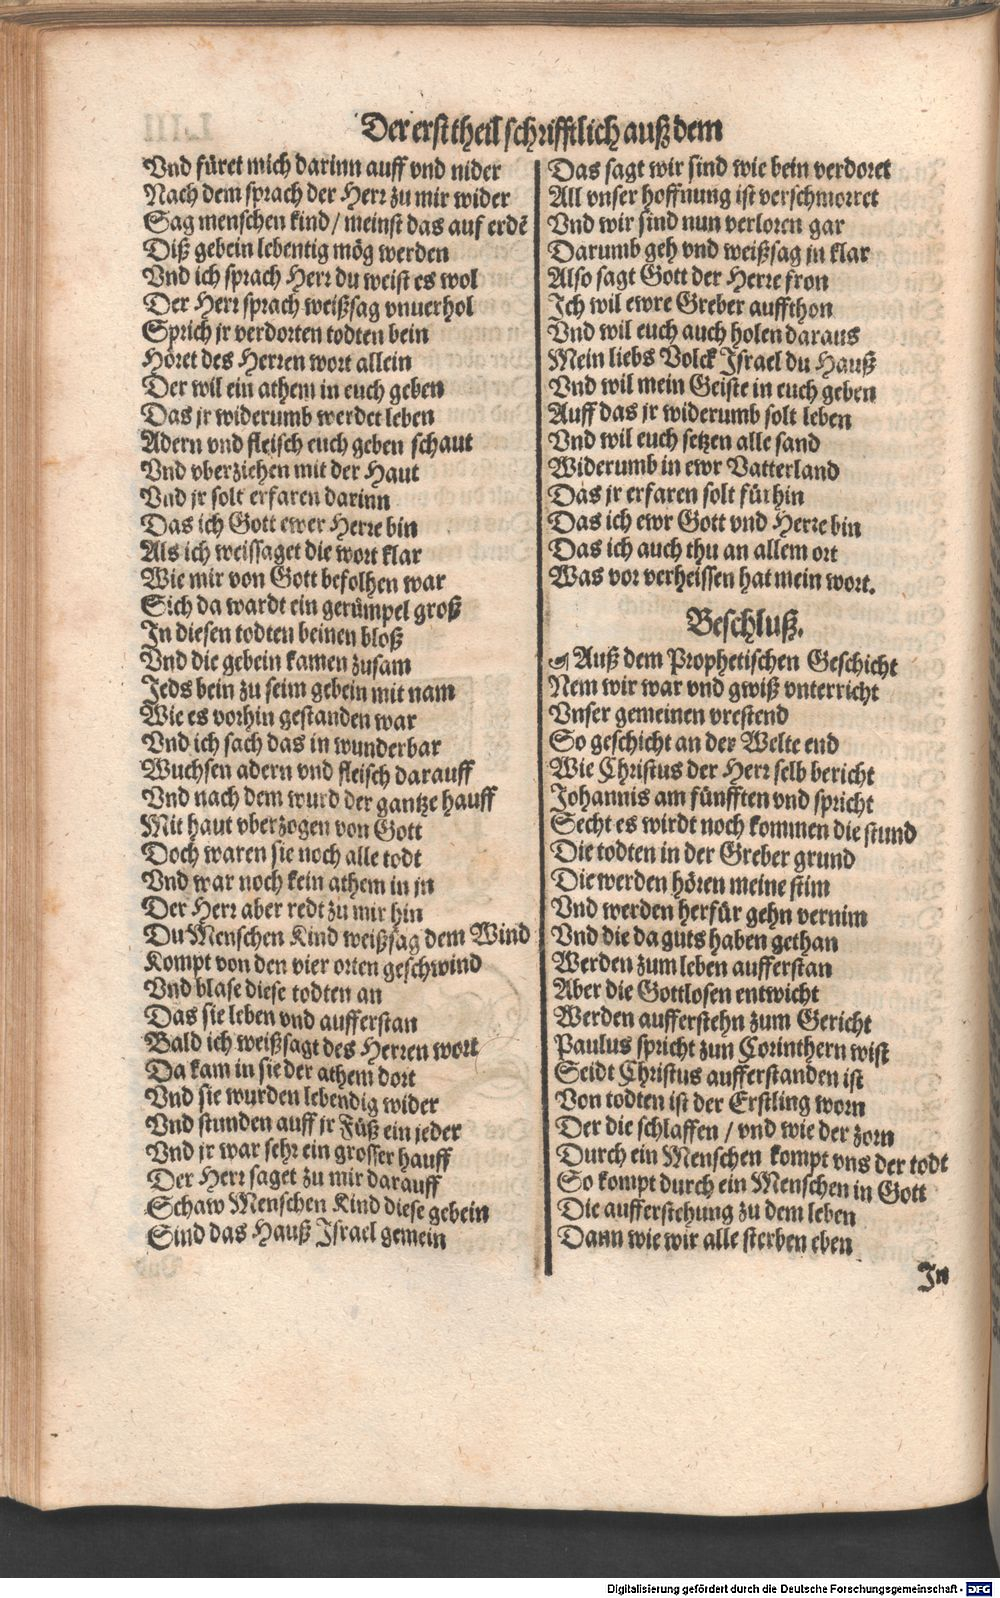 Der erst theil schrifftlich auß dem
Vnd füret mich darinn auff vnd nider
Nach dem sprach der Herr zu mir wider
Sag menschen kind / meinst das auf erdē
Diß gebein lebentig mög werden
Vnd ich sprach Herr du weist es wol
Der Herr sprach weißsag vnuerhol
Sprich jr verdorten todten bein
Höret des Herren wort allein
Der wil ein athem in euch geben
Das jr widerumb werdet leben
Adern vnd fleisch euch geben schaut
Vnd vberziehen mit der Haut
Vnd jr solt erfaren darinn
Das ich Gott ewer Herre bin
Als ich weissaget die wort klar
Wie mir von Gott befolhen war
Sich da wardt ein gerümpel groß
In diesen todten beinen bloß
Vnd die gebein kamen zusam
Jeds bein zu seim gebein mit nam
Wie es vorhin gestanden war
Vnd ich sach das in wunderbar
Wuchsen adern vnd fleisch darauff
Vnd nach dem wurd der gantze hauff
Mit haut vberzogen von Gott
Doch waren sie noch alle todt
Vnd war noch kein athem in jn
Der Herr aber redt zu mir hin
Du Menschen Kind weißsag dem Wind
Kompt von den vier orten geschwind
Vnd blase diese todten an
Das sie leben vnd aufferstan
Bald ich weißsagt des Herren wort
Da kam in sie der athem dort
Vnd sie wurden lebendig wider
Vnd stunden auff jr Füß ein jeder
Vnd jr war sehr ein grosser hauff
Der Herr saget zu mir darauff
Schaw Menschen Kind diese gebein
Sind das Hauß Israel gemein
Das sagt wir sind wie bein verdoret
All vnser hoffnung ist verschmorret
Vnd wir sind nun verloren gar
Darumb geh vnd weißsag jn klar
Also sagt Gott der Herre fron
Ich wil ewre Greber auffthon
Vnd wil euch auch holen daraus
Mein liebs Volck Israel du Hauß
Vnd wil mein Geiste in euch geben
Auff das jr widerumb solt leben
Vnd wil euch setzen alle sand
Widerumb in ewr Vatterland
Das jr erfaren solt fürhin
Das ich ewr Gott vnd Herre bin
Das ich auch thu an allem ort
Was vor verheissen hat mein wort.
Beschluß.
☙ Auß dem Prophetischen Geschicht
Nem wir war vnd gwiß vnterricht
Vnser gemeinen vrestend
So geschicht an der Welte end
Wie Christus der Herr selb bericht
Johannis am fünfften vnd spricht
Secht es wirdt noch kommen die stund
Die todten in der Greber grund
Die werden hören meine stim
Vnd werden herfür gehn vernim
Vnd die da guts haben gethan
Werden zum leben aufferstan
Aber die Gottlosen entwicht
Werden aufferstehn zum Gericht
Paulus spricht zun Corinthern wist
Seidt Christus aufferstanden ist
Von todten ist der Erstling worn
Der die schlaffen / vnd wie der zorn
Durch ein Menschen kompt vns der todt
So kompt durch ein Menschen in Gott
Die aufferstehung zu dem leben
Dann wie wir alle sterben eben
In
Digitalisierung gefördert durch die Deutsche Forschungsgemeinschaft - DFG